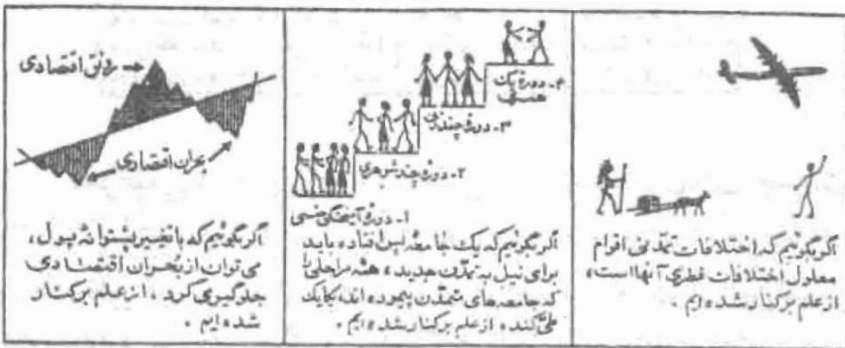 اگر بگوئیم که اختلافات تمدنی اقوام
معلول اختلافات فطری آنها است،
از علم برکنار شده ایم .
۴- دورهٔ یک
همسری
۳- دورهٔ چندزنی
۲- دورهٔ چندشوهری
۱- دورهٔ آمیختگی جنسی
اگر بگوئیم که یک جامعهٔ پس افتاده باید
برای نیل به تمدن جدید، همهٔ مراحلی را
که جامعه های متمدن پیموده اند، یکایک
طی کند، از علم برکنار شده ایم .
رونق اقتصادی
بحران اقتصادی
اگر بگوئیم که با تغییر پشتوانهٔ پول،
می توان از بحران اقتصادی
جلوگیری کرد، از علم برکنار
شده ایم .